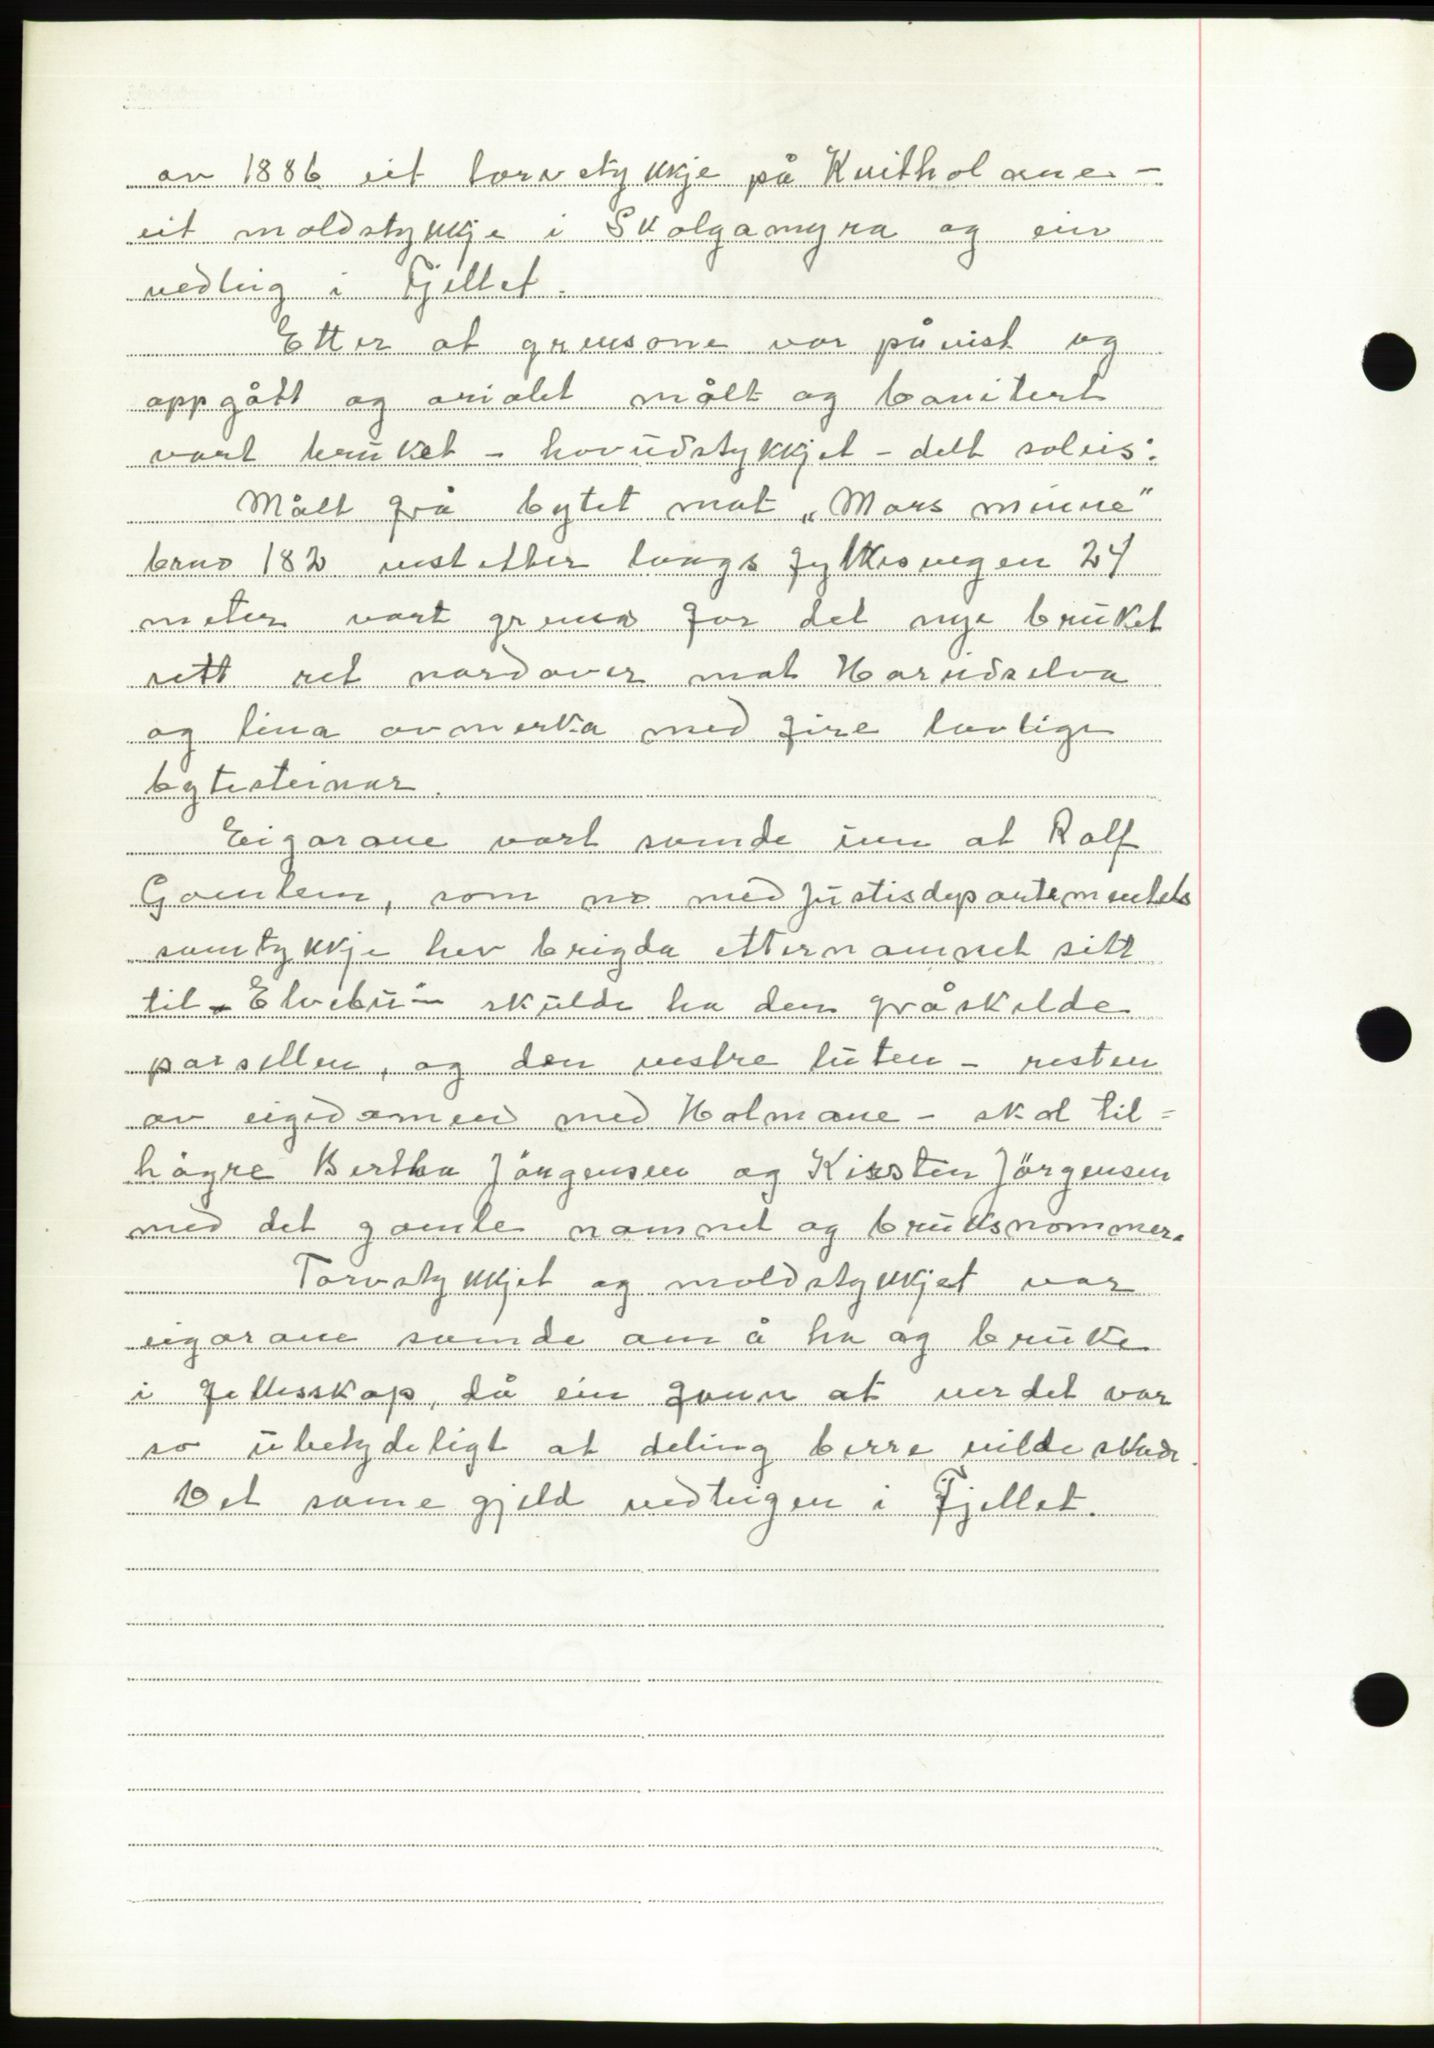 av 1886 eit torvstykkje på Kvitholane –
eit moldstykkje i Skolgamyra og ein
vedteig i Fjellet.
Etter at grensone var påvist og
oppgått og arialet målt og bonitert
vart bruket – hovudstykkjet – delt soleis:
Målt frå bytet mot „Mors minne"
brno 182 vestetter langs fylkesvegen 24
meter vart grensa for det nye bruket
rett ret nordover mot Horudselva
og lina avmerka med fire lovlige
bytesteinar.
Eigarane vart samde um at Rolf
Gamlem, som no med Justisdepartementets
samtykkje hev brigda etternamnet sitt
til – Elvebu – skulde ha den fråskilde
parsellen, og den vestre luten – resten
av eigedomen med Holmane – skal til=
högre Bertha Jörgensen og Kirsten Jörgensen
med det gamle namnet og bruksnommer.
Torvstykkjet og moldstykkjet var
eigarane samde om å ha og bruke
i fellesskap, då ein fann at verdet var
so ubetydeligt at deling berre vilde skade.
Det same gjeld vedteigen i Fjellet.